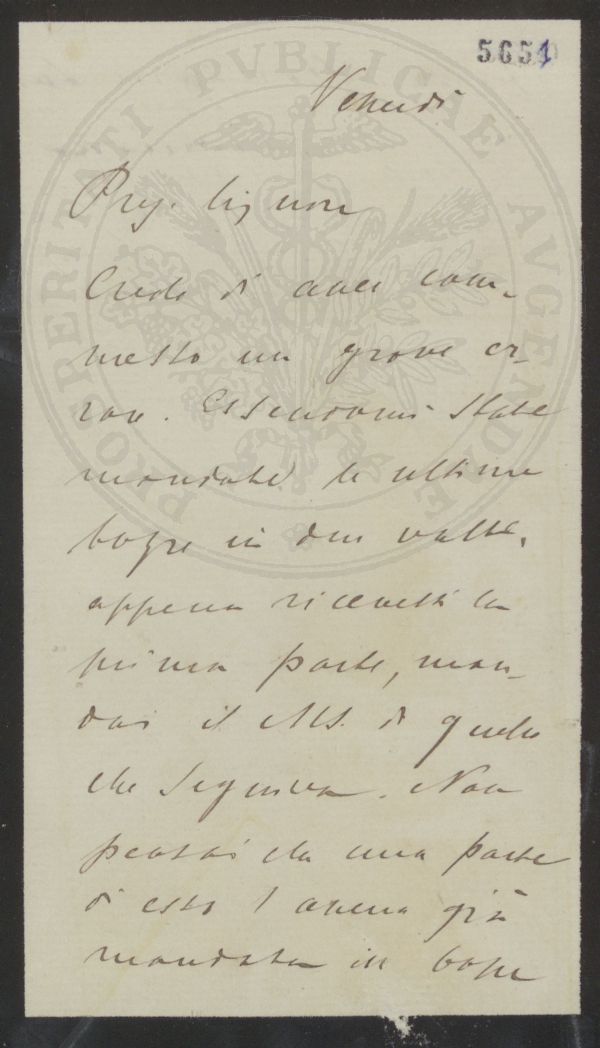 5651
PROSPERITATI PVBLICAE AVGENDAE
Venerdì
Preg. Signore
Credo di aver com-
messo un grave er-
rore. Essendomi state
mandate le ultime
bozze in due volte,
appena ricevetti la
prima parte, man-
dai il MS. di quello
che seguiva. Non
pensai che una parte
di esso l'aveva già
mandata in bozze